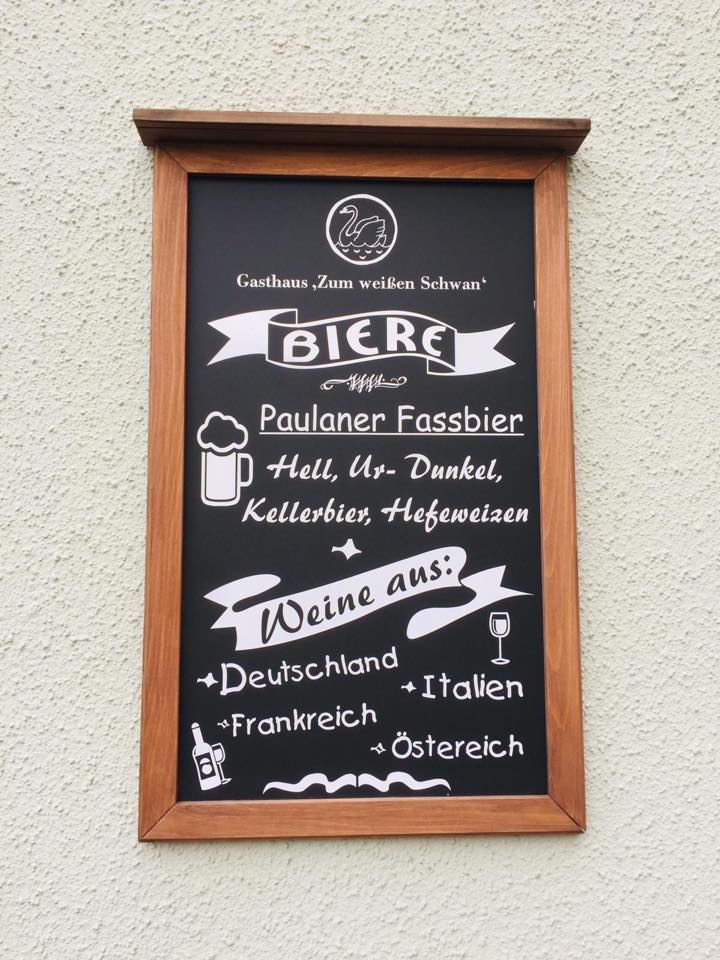 Gasthaus ‚Zum weißen Schwan‘
BIERE
Paulaner Fassbier
Hell, Ur- Dunkel,
Kellerbier, Hefeweizen
Weine aus:
Deutschland
Italien
Frankreich
Östereich